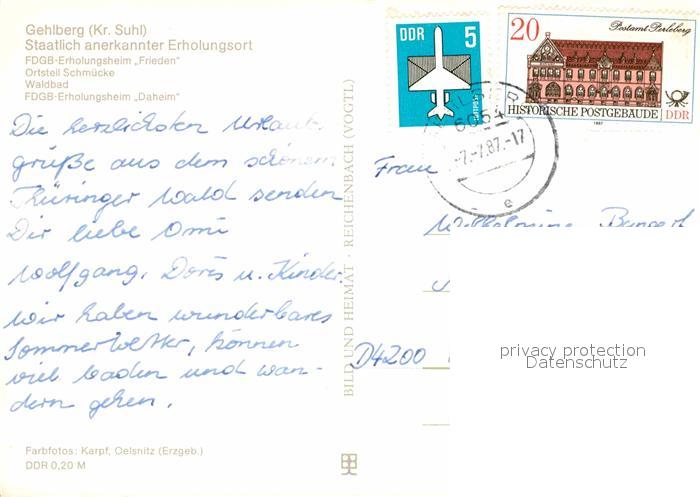 Gehlberg (Kr. Suhl)
Staatlich anerkannter Erholungsort
FDGB-Erholungsheim „Frieden"
Ortsteil Schmücke
Waldbad
FDGB-Erholungsheim „Daheim"
Die herzlichsten Urlaubs-
grüße aus dem schönen
Thüringer Wald senden
Dir liebe Omi
Wolfgang, Doris u. Kinder.
Wir haben wunderbares
Sommerwetter, können
viel baden und wan-
dern gehen.
Farbfotos: Karpf, Oelsnitz (Erzgeb.)
DDR 0,20 M
BILD UND HEIMAT · REICHENBACH (VOGTL)
DDR 5
20 Postamt Perleberg
HISTORISCHE POSTGEBÄUDE
DDR
1987
6054
-7.-7.87.-17
e
Frau
D4200
privacy protection
Datenschutz